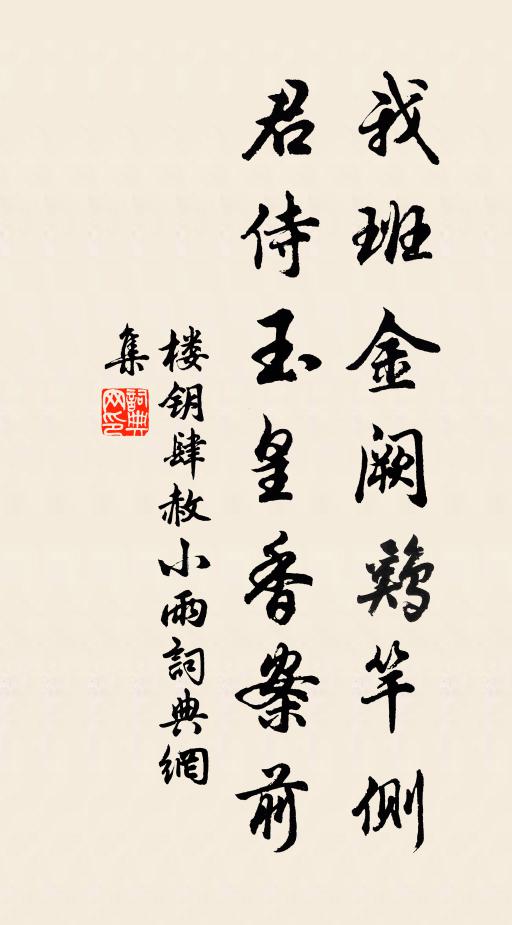 我班金阙鷄竿側
君侍玉皇香案前
楼钥肆赦小雨詞典網
集
詞典
网印